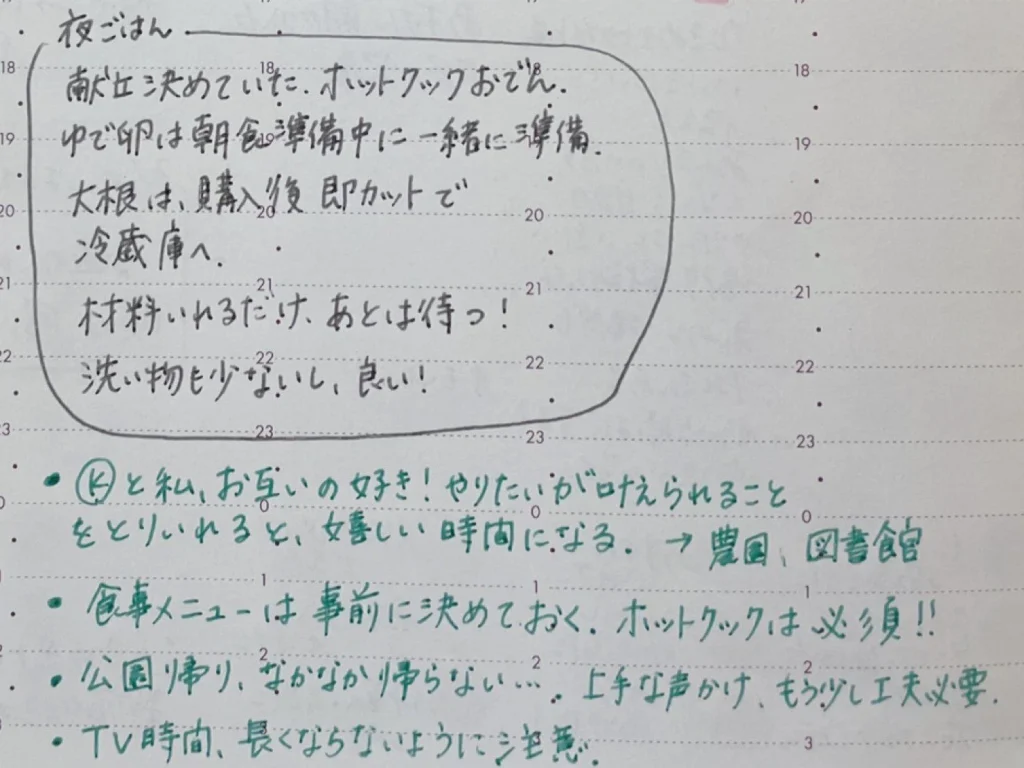 夜ごはん
献立決めていた.ホットクックおでん.
ゆで卵は朝食準備中に一緒に準備.
大根は、購入後 即カットで
冷蔵庫へ.
材料いれるだけ、あとは待つ!
洗い物も少ないし、良い!
18 18 18
19 19 19
20 20 20
21 21 21 21
22 22 22 22
23 23 23 23
・Ⓚと私、お互いの好き!やりたいが叶えられること
をとりいれると、嬉しい時間になる.→農園、図書館
・食事メニューは事前に決めておく.ホットクックは必須!!
・公園帰り、なかなか帰らない….上手な声かけ、もう少し工夫必要.
・TV時間、長くならないように注意.
0 0 0 0
1 1 1
2 2 2 2
3